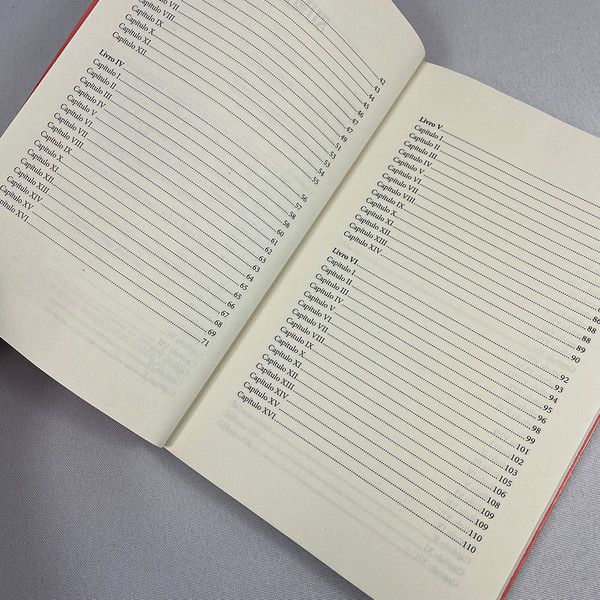 Capítulo VIII
Capítulo IX
Capítulo X
Capítulo XI
Capítulo XII
42
43
44
45
46
47
47
49
51
53
53
54
55
Livro IV
Capítulo I
Capítulo II
Capítulo III
Capítulo IV
Capítulo V
Capítulo VI
Capítulo VII
Capítulo VIII
Capítulo IX
Capítulo X
Capítulo XI
Capítulo XII
Capítulo XIII
Capítulo XIV
Capítulo XV
apítulo XVI
56
57
58
58
60
61
62
63
63
64
65
65
66
67
68
69
71
Livro V
Capítulo I
Capítulo II
Capítulo III
Capítulo IV
Capítulo V
Capítulo VI
Capítulo VII
Capítulo VIII
Capítulo IX
Capítulo X 86
Capítulo XI 88
Capítulo XII 88
Capítulo XIII 89
Capítulo XIV 90
Livro VI
Capítulo I 92
Capítulo II 93
Capítulo III 94
Capítulo IV 95
Capítulo V 96
Capítulo VI 98
Capítulo VII 99
Capítulo VIII 101
Capítulo IX 102
Capítulo X 103
Capítulo XI 105
Capítulo XII 106
Capítulo XIII 108
Capítulo XIV 109
Capítulo XV 110
Capítulo XVI 110